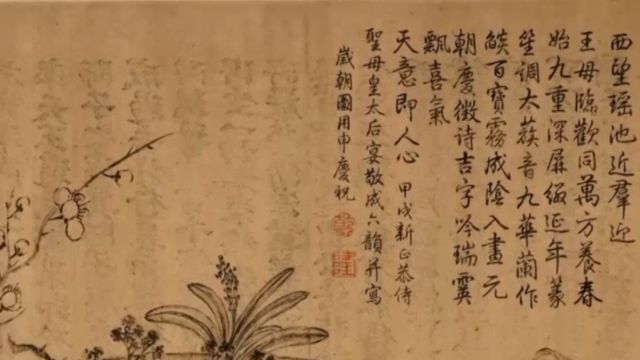 西望瑶池近羣迎
王母臨歡同萬方養春
始九重深屏綴延年篆
笙調太蔟音九華蘭作
燄百寶霧成陰入畫元
朝慶徵詩吉字吟瑞霙
飄喜氣
天意即人心 甲戌新正恭侍
聖母皇太后宴敬成六韻并寫
歲朝圖用申慶祝